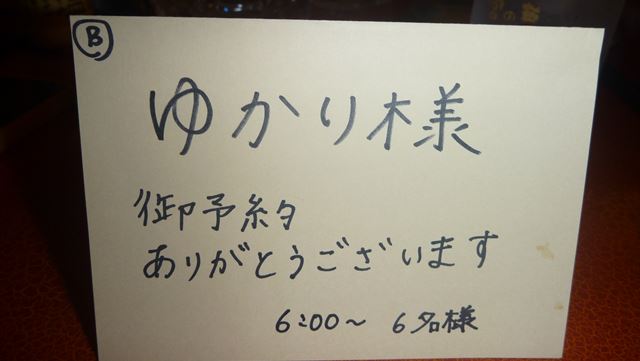 B
ゆかり様
御予約
ありがとうございます
6:00〜 6名様